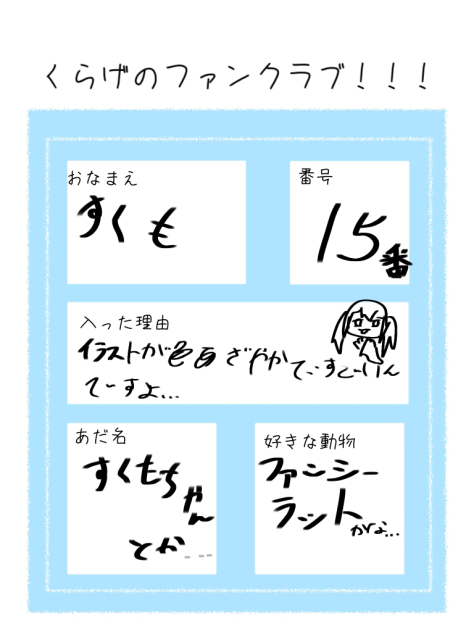 くらげのファンクラブ！！！
おなまえ
すくも
番号
15番
入った理由
イラストが色あざやかで、すご〜いん
で〜すよ...
あだ名
すくもちゃん
とか...
好きな動物
ファンシー
ラット
かな...